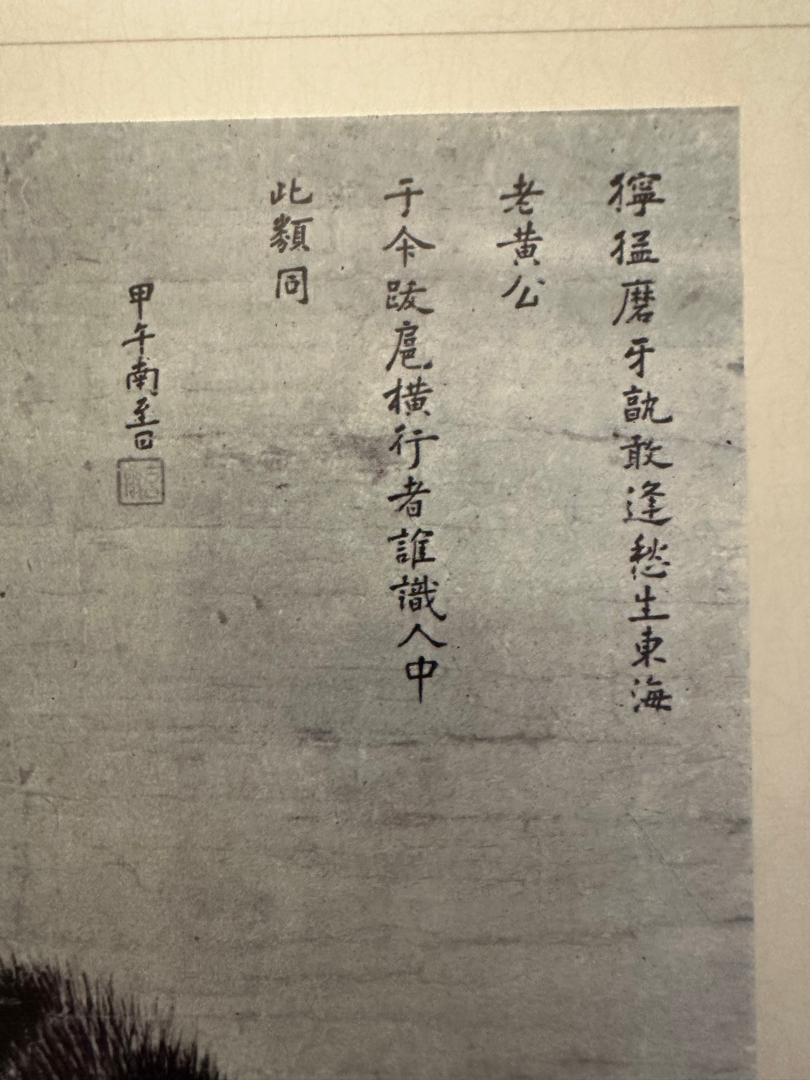 獰猛磨牙孰敢逢愁生東海
老黃公
于今跋扈橫行者誰識人中
此類同
甲午南至日